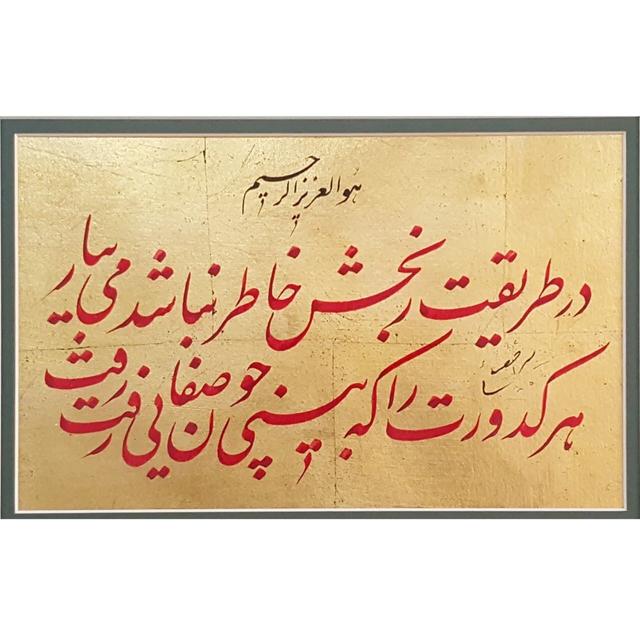 هو العزیز الرحیم
در طریقت رنجش خاطر نباشد می بیار
هر کدورت را که بینی چون صفایی رفت رفت